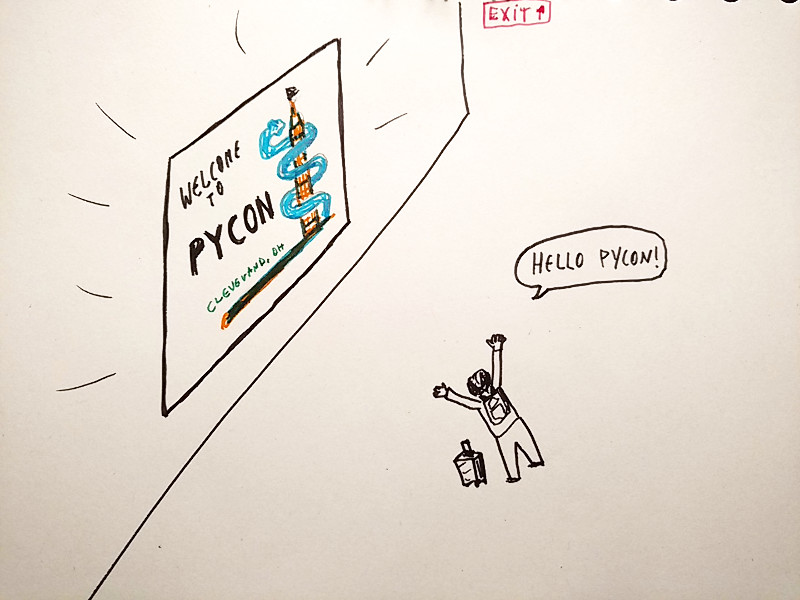 EXIT ↑
WELCOME
TO
PYCON
CLEVELAND, OH
HELLO PYCON!